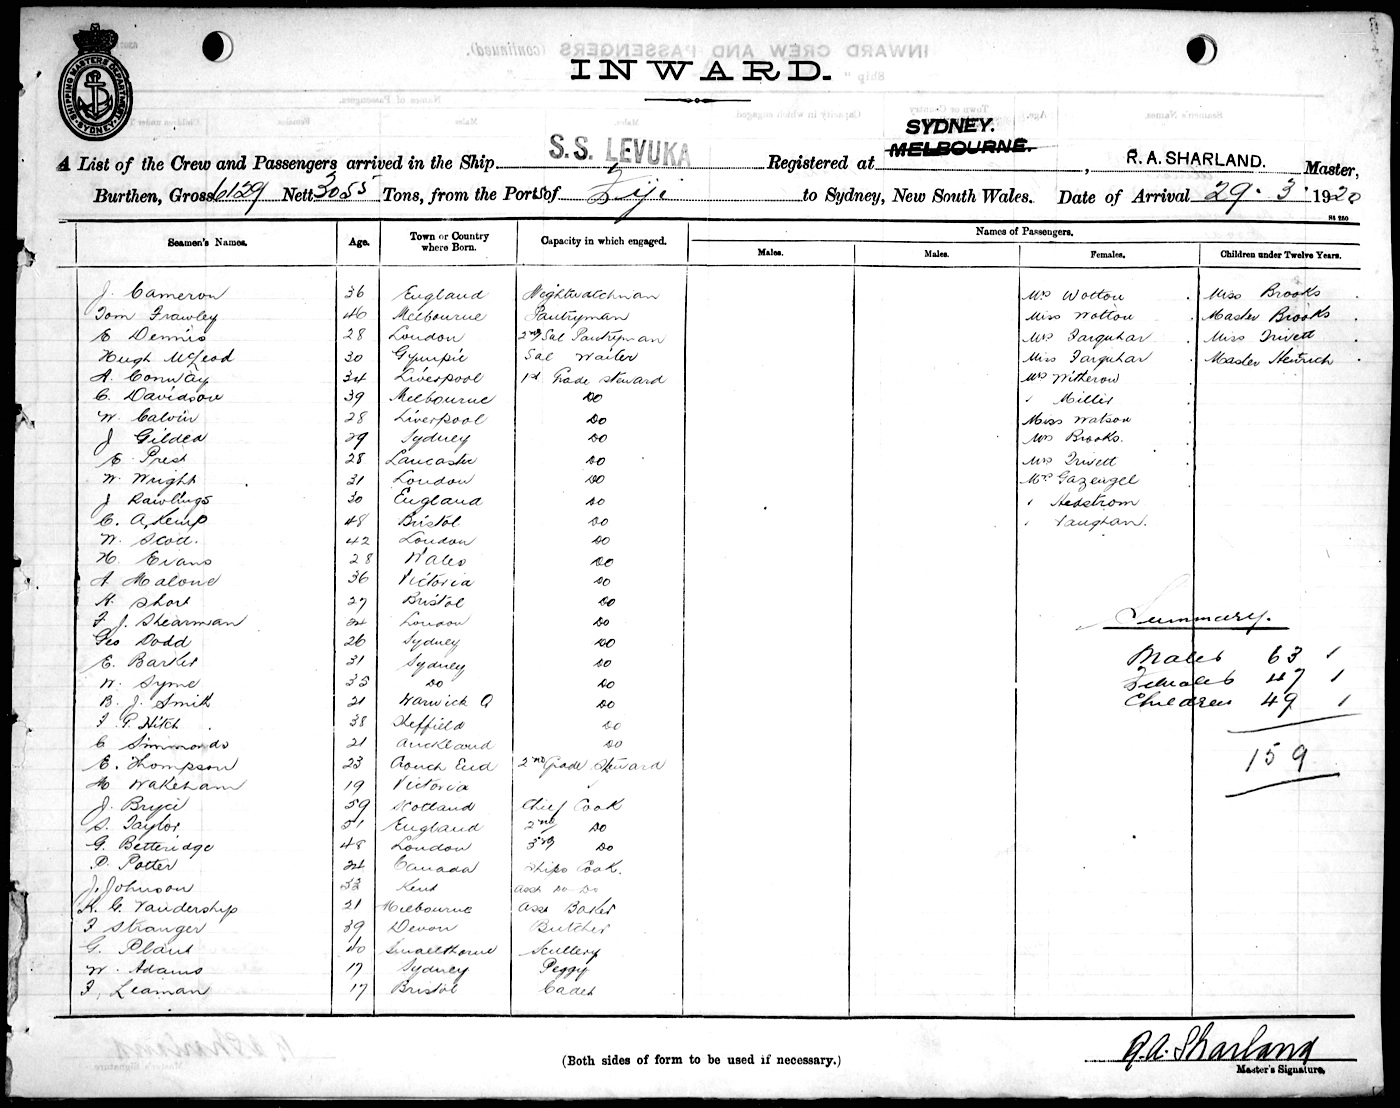 SHIPPING MASTERS DEPARTMENT SYDNEY
INWARD.
A List of the Crew and Passengers arrived in the Ship S.S. LEVUKA Registered at SYDNEY. MELBOURNE. , R. A. SHARLAND. Master,
Burthen, Gross 6129 Nett 3055 Tons, from the Port of Fiji to Sydney, New South Wales. Date of Arrival 29.3.1920
Seamen's Names. Age. Town or Country where Born. Capacity in which engaged. Names of Passengers.
Males. Males. Females. Children under Twelve Years.
J. Cameron 36 England Nightwatchman Mrs Wotton Miss Brooks
Tom Frawley 46 Melbourne Pantryman Miss Wotton Master Brooks
E Dennis 28 London 2nd Sal Pantryman Mrs Farquhar Miss Trivett
Hugh McLeod 30 Gympie Sal Waiter Miss Farquhar Master Heinrich
A. Conway 34 Liverpool 1st Grade Steward Mrs Witherow
C. Davidson 39 Melbourne Do " Miller
W. Calvin 28 Liverpool Do Miss Watson
J Gildea 29 Sydney Do Mrs Brooks.
E. Prest 28 Lancaster Do Mrs Trivett
W. Wright 31 London Do Mrs Gazengel
J Rawlings 30 England Do " Hedstrom
C. A. Kemp 48 Bristol Do " Vaughan.
W. Scott. 42 London Do
H. Evans 28 Wales Do
A. Malone 36 Victoria Do
H. Short 27 Bristol Do
F. J. Shearman London Do
Geo Dodd 26 Sydney Do
E. Barker 31 Sydney Do
W. Syme 35 Do Do
B. J. Smith 21 Warwick Q Do
F. G. Hitch 38 Sheffield Do
C Simmonds 21 Auckland Do
E. Thompson 23 Crouch End 2nd Grade Steward
M Wakeham 19 Victoria "
J. Bryce 59 Scotland Chief Cook
S. Taylor England 2nd Do
G. Betteridge 48 London 3rd Do
P. Potter 24 Canada Ships Cook.
J. Johnson 32 Kent Asst Do Do
K. G. Vandership 21 Melbourne Asst Baker
F Stranger 39 Devon Butcher
G. Plant 40 Smallthorne Scullery
W. Adams 17 Sydney Peggy
F. Leaman 17 Bristol Cadet
Summary.
Males 63 1
Females 47 1
Children 49 1
159
(Both sides of form to be used if necessary.)
R.A. Sharland
Master's Signature.